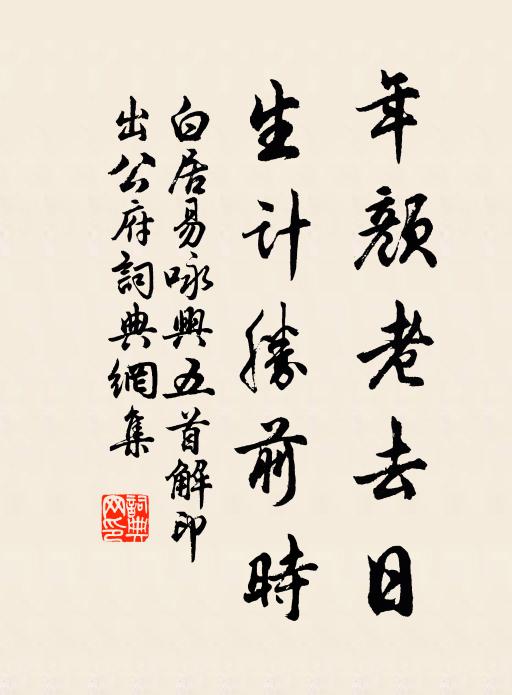 年顏老去日
生计勝前時
白居易咏興五首解印
出公府詞典網集
詞典
网印